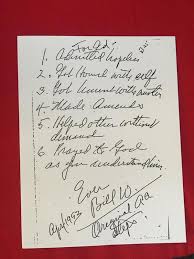 For Ed
1. Admitted hopeless
2. Got honest with self
3. Got honest with another
4. Made Amends
5. Helped other without
demand
6. Prayed to God
as you understand Him.
Ever
Bill W.
Apr/1953
Original AA
Steps